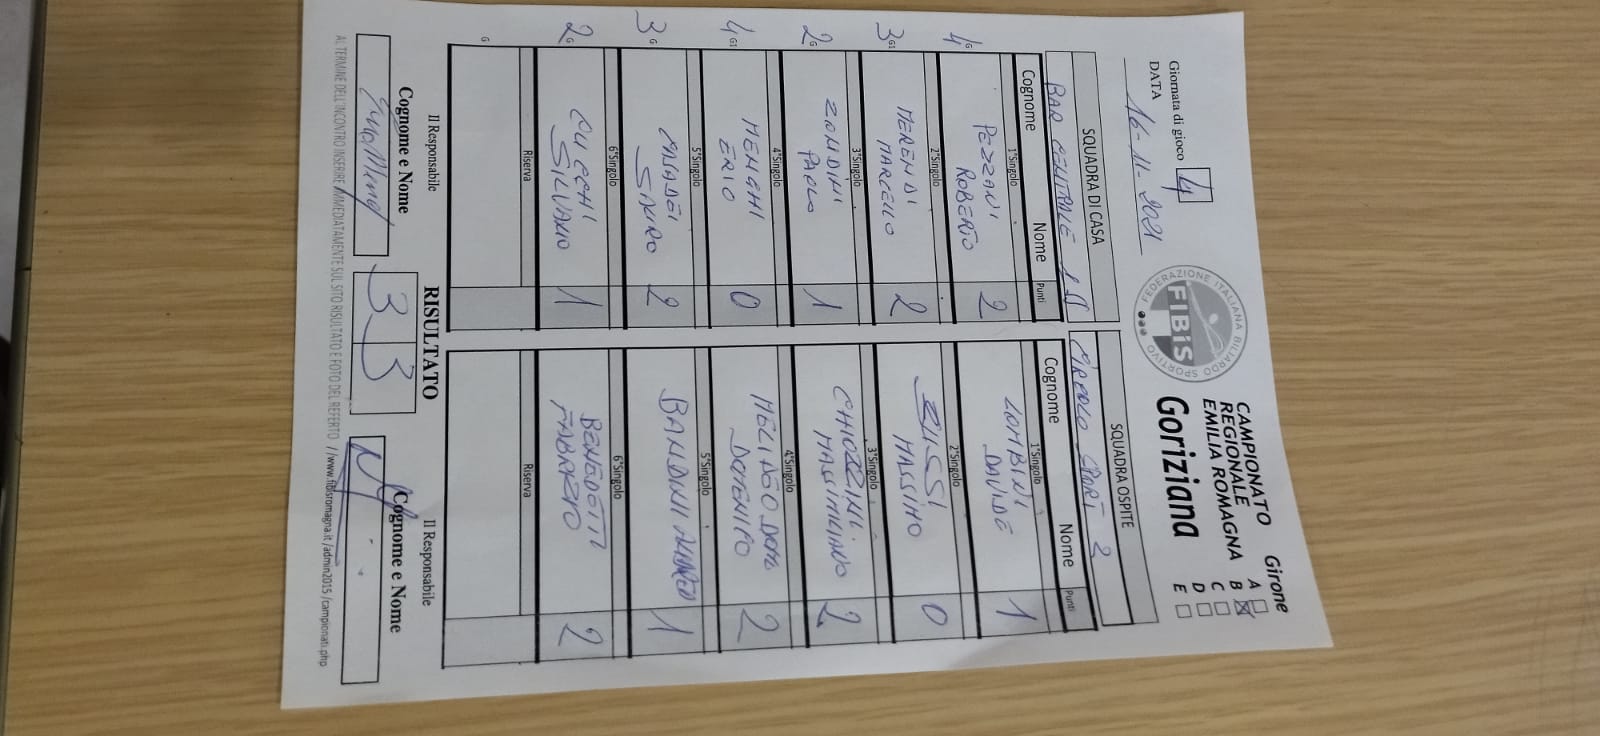 CAMPIONATO Girone
REGIONALE A
EMILIA ROMAGNA B
Goriziana C
D
E
FEDERAZIONE ITALIANA BILIARDO SPORTIVO
FIBiS
Giornata di gioco 4
DATA 16-11-2021
SQUADRA DI CASA SQUADRA OSPITE
BAR CENTRALE CIRCOLO SPORT 2
Cognome Nome Punti Cognome Nome Punti
1°Singolo 1°Singolo
4 G PEZZANI ROBERTO 2 LOMBINI DAVIDE 1
2°Singolo 2°Singolo
3 G1 MERENDI MARCELLO 2 BUSSI MASSIMO 0
3°Singolo 3°Singolo
2 G ZONDINI PAOLO 1 CHIOZZINI MASSIMILIANO 2
4°Singolo 4°Singolo
4 G1 MENGHI ERIO 0 DOMENICO 2
5°Singolo 5°Singolo
3 G AMADEI SAURO 2 BANDINI 1
6°Singolo 6°Singolo
2 G CUCCHI SILVANO 1 BENEDETTI FABRIZIO 2
Riserva Riserva
G
Il Responsabile RISULTATO Il Responsabile
Cognome e Nome 3 3 Cognome e Nome
AL TERMINE DELL'INCONTRO INSERIRE IMMEDIATAMENTE SUL SITO RISULTATO E FOTO DEL REFERTO //www.fibisromagna.it /admin2015 /campionati.php